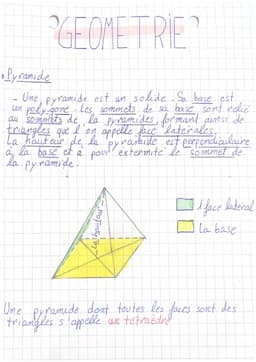 GEOMETRIE
Pyramide
- Une pyramide est un solide. Sa base est
un polygone. Les sommets de sa base sont relié
au sommets de la pyramides, formant ainsi de
triangles que l'on appelle face laterales.
La hauteur de la pyramide est perpendiculaire
a la base et a pour extermité le sommet de
la pyramide.
La hauteur
1 face lateral
La base
Une pyramide dont toutes les faces sont des
triangles s'appelle un tétraèdre